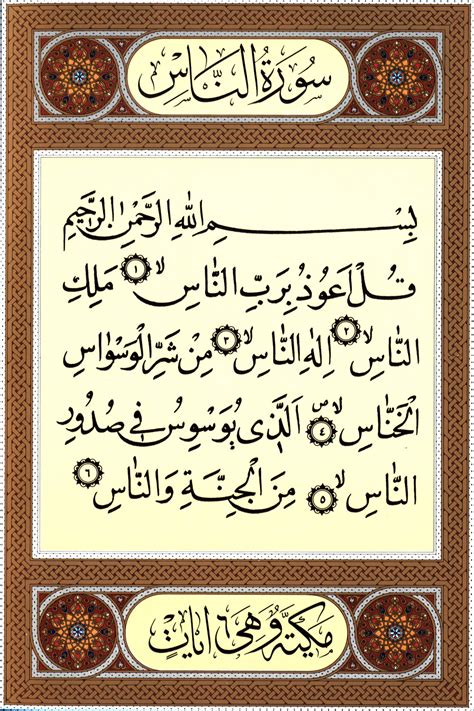 سُورَةُ النَّاسِ
بِسْمِ اللهِ الرَّحْمٰنِ الرَّحِيمِ
قُلْ اَعُوذُ بِرَبِّ النَّاسِۙ ﴿١﴾ مَلِكِ
النَّاسِۙ ﴿٢﴾ اِلٰهِ النَّاسِۙ ﴿٣﴾ مِنْ شَرِّ الْوَسْوَاسِ
الْخَنَّاسِۙۖ ﴿٤﴾ اَلَّذِى يُوَسْوِسُ فِى صُدُورِ
النَّاسِۙ ﴿٥﴾ مِنَ الْجِنَّةِ وَالنَّاسِ ﴿٦﴾
مَكِّيَّةٌ وَهِىَ ٦ اٰيَاتٍ